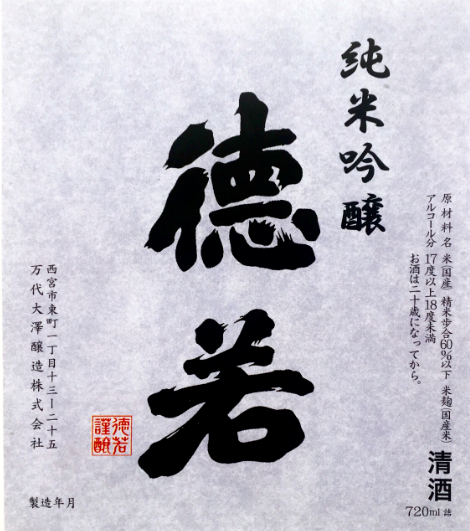 純米吟醸
原材料名 米(国産) 精米歩合60%以下 米麹(国産米)
アルコール分 17度以上18度未満
お酒は二十歳になってから。
清酒
720ml 詰
徳若
徳若
謹醸
西宮市東町一丁目十三ー二十五
万代大澤醸造株式会社
製造年月